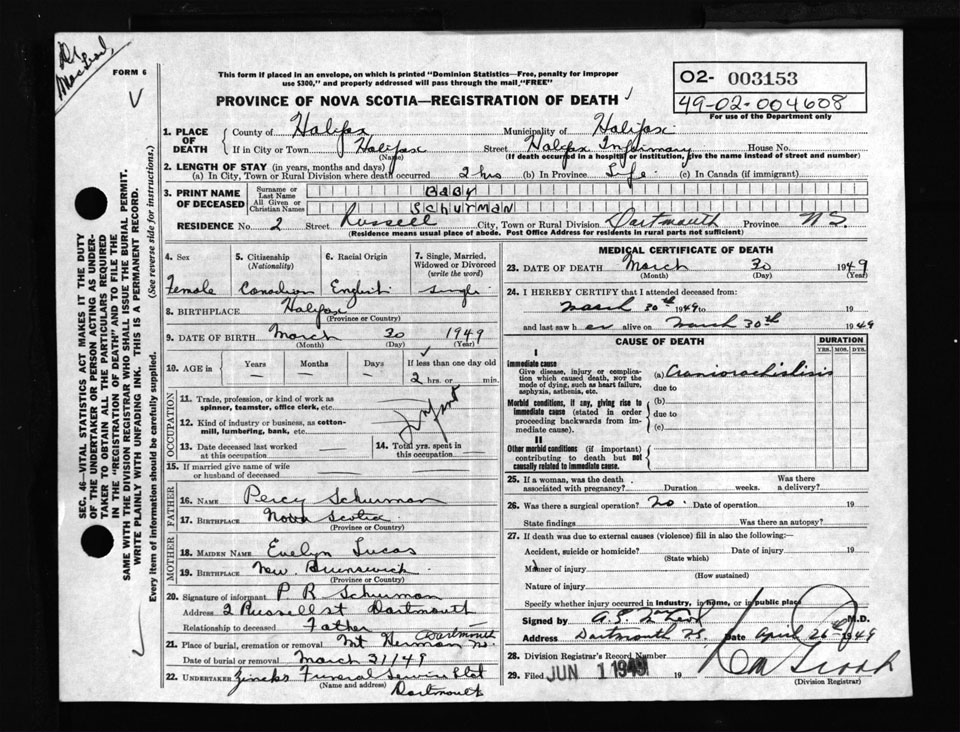 Dr.
MacLeod
FORM 6
This form if placed in an envelope, on which is printed "Dominion Statistics—Free, penalty for improper
use $300," and properly addressed will pass through the mail "FREE"
PROVINCE OF NOVA SCOTIA—REGISTRATION OF DEATH
O2- 003153
49-02-004608
For use of the Department only
1. PLACE OF DEATH County of Halifax Municipality of Halifax
If in City or Town Halifax Street Halifax Infirmary House No.
(Name) (If death occurred in a hospital or institution, give the name instead of street and number)
2. LENGTH OF STAY (in years, months and days)
(a) In City, Town or Rural Division where death occurred 2 hrs (b) In Province Life (c) In Canada (if immigrant)
3. PRINT NAME OF DECEASED Surname or Last Name BABY
All Given or Christian Names SCHURMAN
RESIDENCE No. 2 Street Russell City, Town or Rural Division Dartmouth Province N.S.
(Residence means usual place of abode. Post Office Address for residents in rural parts not sufficient)
4. Sex 5. Citizenship (Nationality) 6. Racial Origin 7. Single, Married, Widowed or Divorced (write the word)
Female Canadian English single
8. BIRTHPLACE Halifax
(Province or Country)
9. DATE OF BIRTH March 30 1949
(Month) (Day) (Year)
10. AGE in Years Months Days If less than one day old
— — — 2 hrs. or min.
OCCUPATION
11. Trade, profession or kind of work as
spinner, teamster, office clerk, etc.
Infant
12. Kind of industry or business, as cotton-
mill, lumbering, bank, etc.
13. Date deceased last worked
at this occupation
14. Total yrs. spent in
this occupation
15. If married give name of wife
or husband of deceased
FATHER
16. NAME Percy Schurman
17. BIRTHPLACE Nova Scotia
(Province or Country)
MOTHER
18. MAIDEN NAME Evelyn Lucas
19. BIRTHPLACE New Brunswick
(Province or Country)
20. Signature of informant P R Schurman
Address 2 Russell st Dartmouth
Relationship to deceased Father
21. Place of burial, cremation or removal Mt Herman Dartmouth N.S.
Date of burial or removal March 31/49
22. UNDERTAKER Zincks Funeral Service
(Name and address) Dartmouth
MEDICAL CERTIFICATE OF DEATH
23. DATE OF DEATH March 30 1949
(Month) (Day) (Year)
24. I HEREBY CERTIFY that I attended deceased from:
March 30th 1949 to 19
and last saw her alive on March 30th 1949
CAUSE OF DEATH
DURATION
YRS. MOS. DYS.
I
Immediate cause
Give disease, injury or complica-
tion which caused death, NOT the
mode of dying, such as heart failure,
asphyxia, asthenia, etc.
(a) Craniorachishisis
due to
Morbid conditions, if any, giving rise to
immediate cause (stated in order
proceeding backwards from im-
mediate cause).
(b)
due to
(c)
II
Other morbid conditions (if important)
contributing to death but not
causally related to immediate cause.
25. If a woman, was the death
associated with pregnancy? Duration weeks. Was there
a delivery?
26. Was there a surgical operation? no. Date of operation 19
State findings Was there an autopsy?
27. If death was due to external causes (violence) fill in also the following:—
Accident, suicide or homicide? Date of injury 19
(State which)
Manner of injury
(How sustained)
Nature of injury
Specify whether injury occurred in industry, in home, or in public place
Signed by M.D.
Address Dartmouth N.S. Date April 26th 1949
28. Division Registrar's Record Number
29. Filed JUN 1 1949 19
(Division Registrar)
SEC. 46—VITAL STATISTICS ACT MAKES IT THE DUTY
OF THE UNDERTAKER OR PERSON ACTING AS UNDER-
TAKER TO OBTAIN ALL THE PARTICULARS REQUIRED
IN THE "REGISTRATION OF DEATH" AND TO FILE THE
SAME WITH THE DIVISION REGISTRAR WHO SHALL ISSUE THE BURIAL PERMIT.
WRITE PLAINLY WITH UNFADING INK. THIS IS A PERMANENT RECORD.
Every item of information should be carefully supplied. (See reverse side for instructions.)